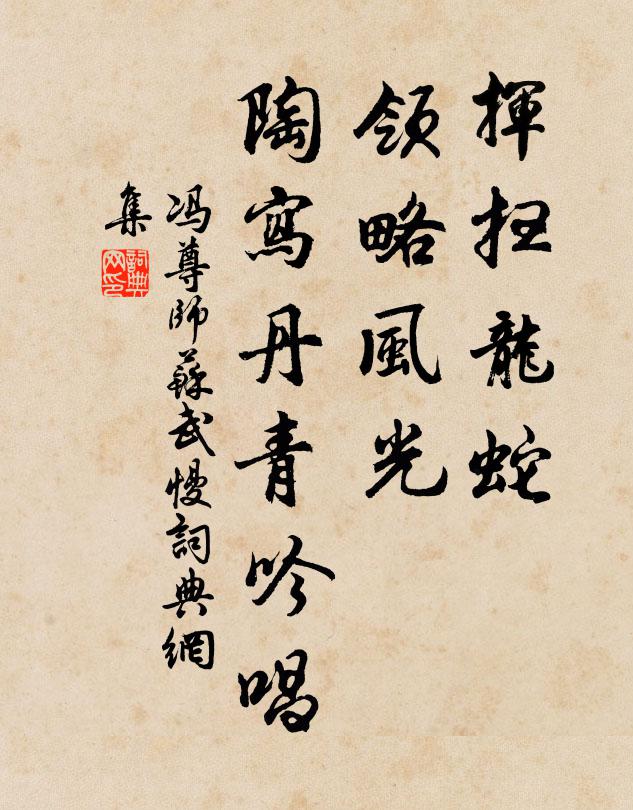 揮扫龍蛇
領略風光
陶寫丹青吟唱
冯尊師蘇武慢詞典網
集
詞典
网印